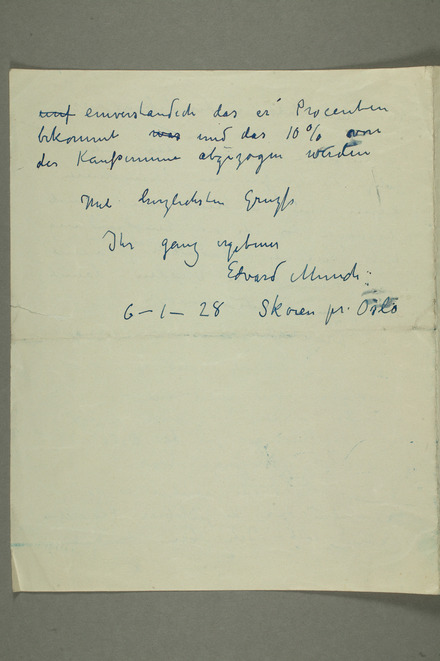 einverstandich das er Procenten
bekommt und das 10% von
der Kaufsumme abgezogen werden
Mit herzlichsten Gruss
Ihr ganz ergebener
Edvard Munch
6–1–28 Skøien pr. Oslo